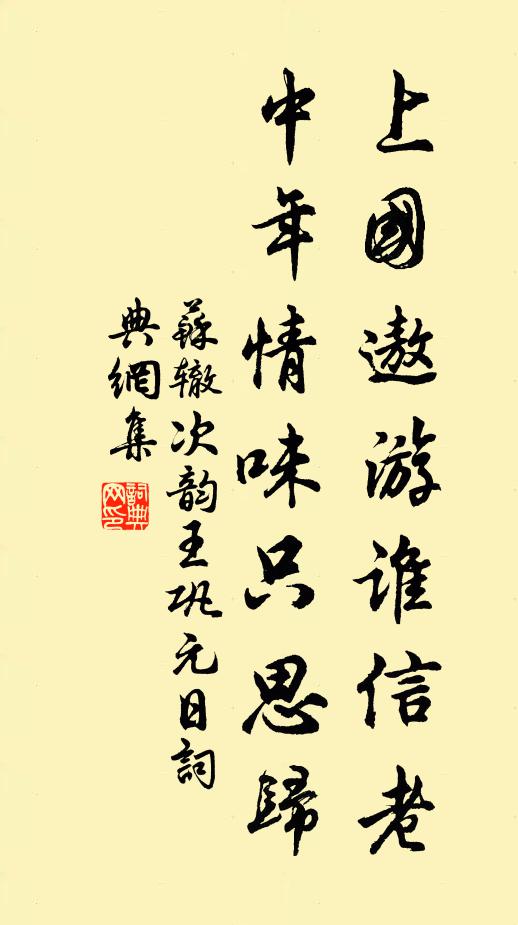 上國遨游谁信老
中年情味只思歸
蘇辙次韵王巩元日詞
典網集
詞典
网印